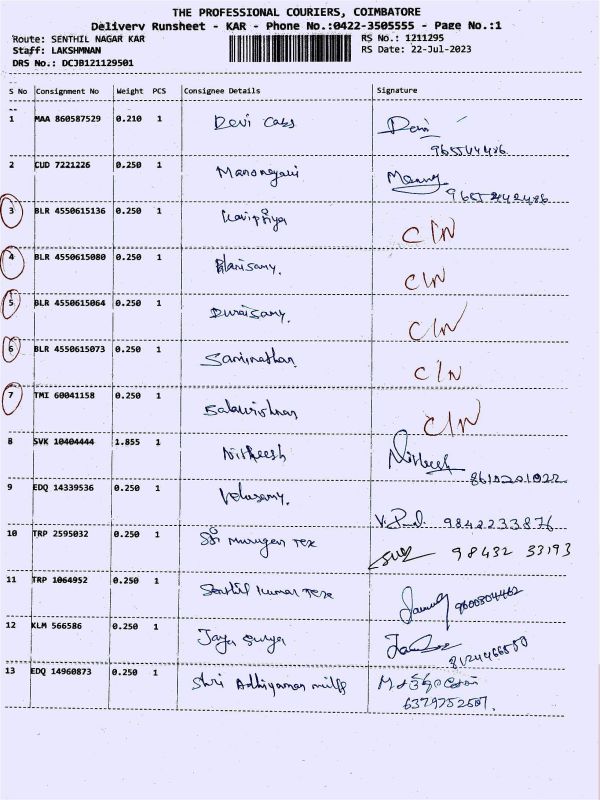 THE PROFESSIONAL COURIERS, COIMBATORE
Delivery Runsheet - KAR - Phone No.:0422-3505555 - Page No.:1
Route: SENTHIL NAGAR KAR RS No.: 1211295
Staff: LAKSHMNAN RS Date: 22-Jul-2023
DRS No.: DCJB121129501
S No Consignment No Weight PCS Consignee Details Signature
1 MAA 860587529 0.210 1 Devi Cabs Devi
2 CUD 7221226 0.250 1 Manonegavi
3 BLR 4550615136 0.250 1 Kavipriya C/N
4 BLR 4550615080 0.250 1 Harisamy. C/N
5 BLR 4550615064 0.250 1 Duraisamy. C/N
6 BLR 4550615073 0.250 1 Saminathan C/N
7 TMI 60041158 0.250 1 Balakrishnan C/N
8 SVK 10404444 1.855 1 Nitheesh Nitheesh
8610201022
9 EDQ 14339536 0.250 1 Velusamy. 9842233876
10 TRP 2595032 0.250 1 Sri Murugan Tex 98432 33193
11 TRP 1064952 0.250 1 Senthil Kumar Texx 9600304462
12 KLM 566586 0.250 1 Jaya Surya
8124466550
13 EDQ 14960873 0.250 1 Shri Adhiyaman mills
6379752507.